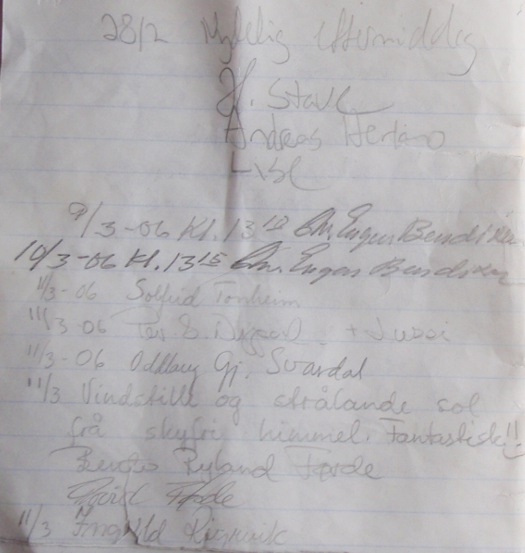 28/2 Nydelig eftermiddag
H. Stave
Andreas
9/3-06 Kl. 13 Chr. Eugen Bendiksen
10/3-06 Kl. 13 15 Chr. Eugen Bendiksen
11/3-06 Solfrid Tonheim
11/3-06 + Jussi
11/3-06 Oddlaug Gj. Svardal
11/3 Vindstille og strålande sol
frå skyfri himmel. Fantastisk!!
Ryland Førde
Førde
11/3 Ingvild